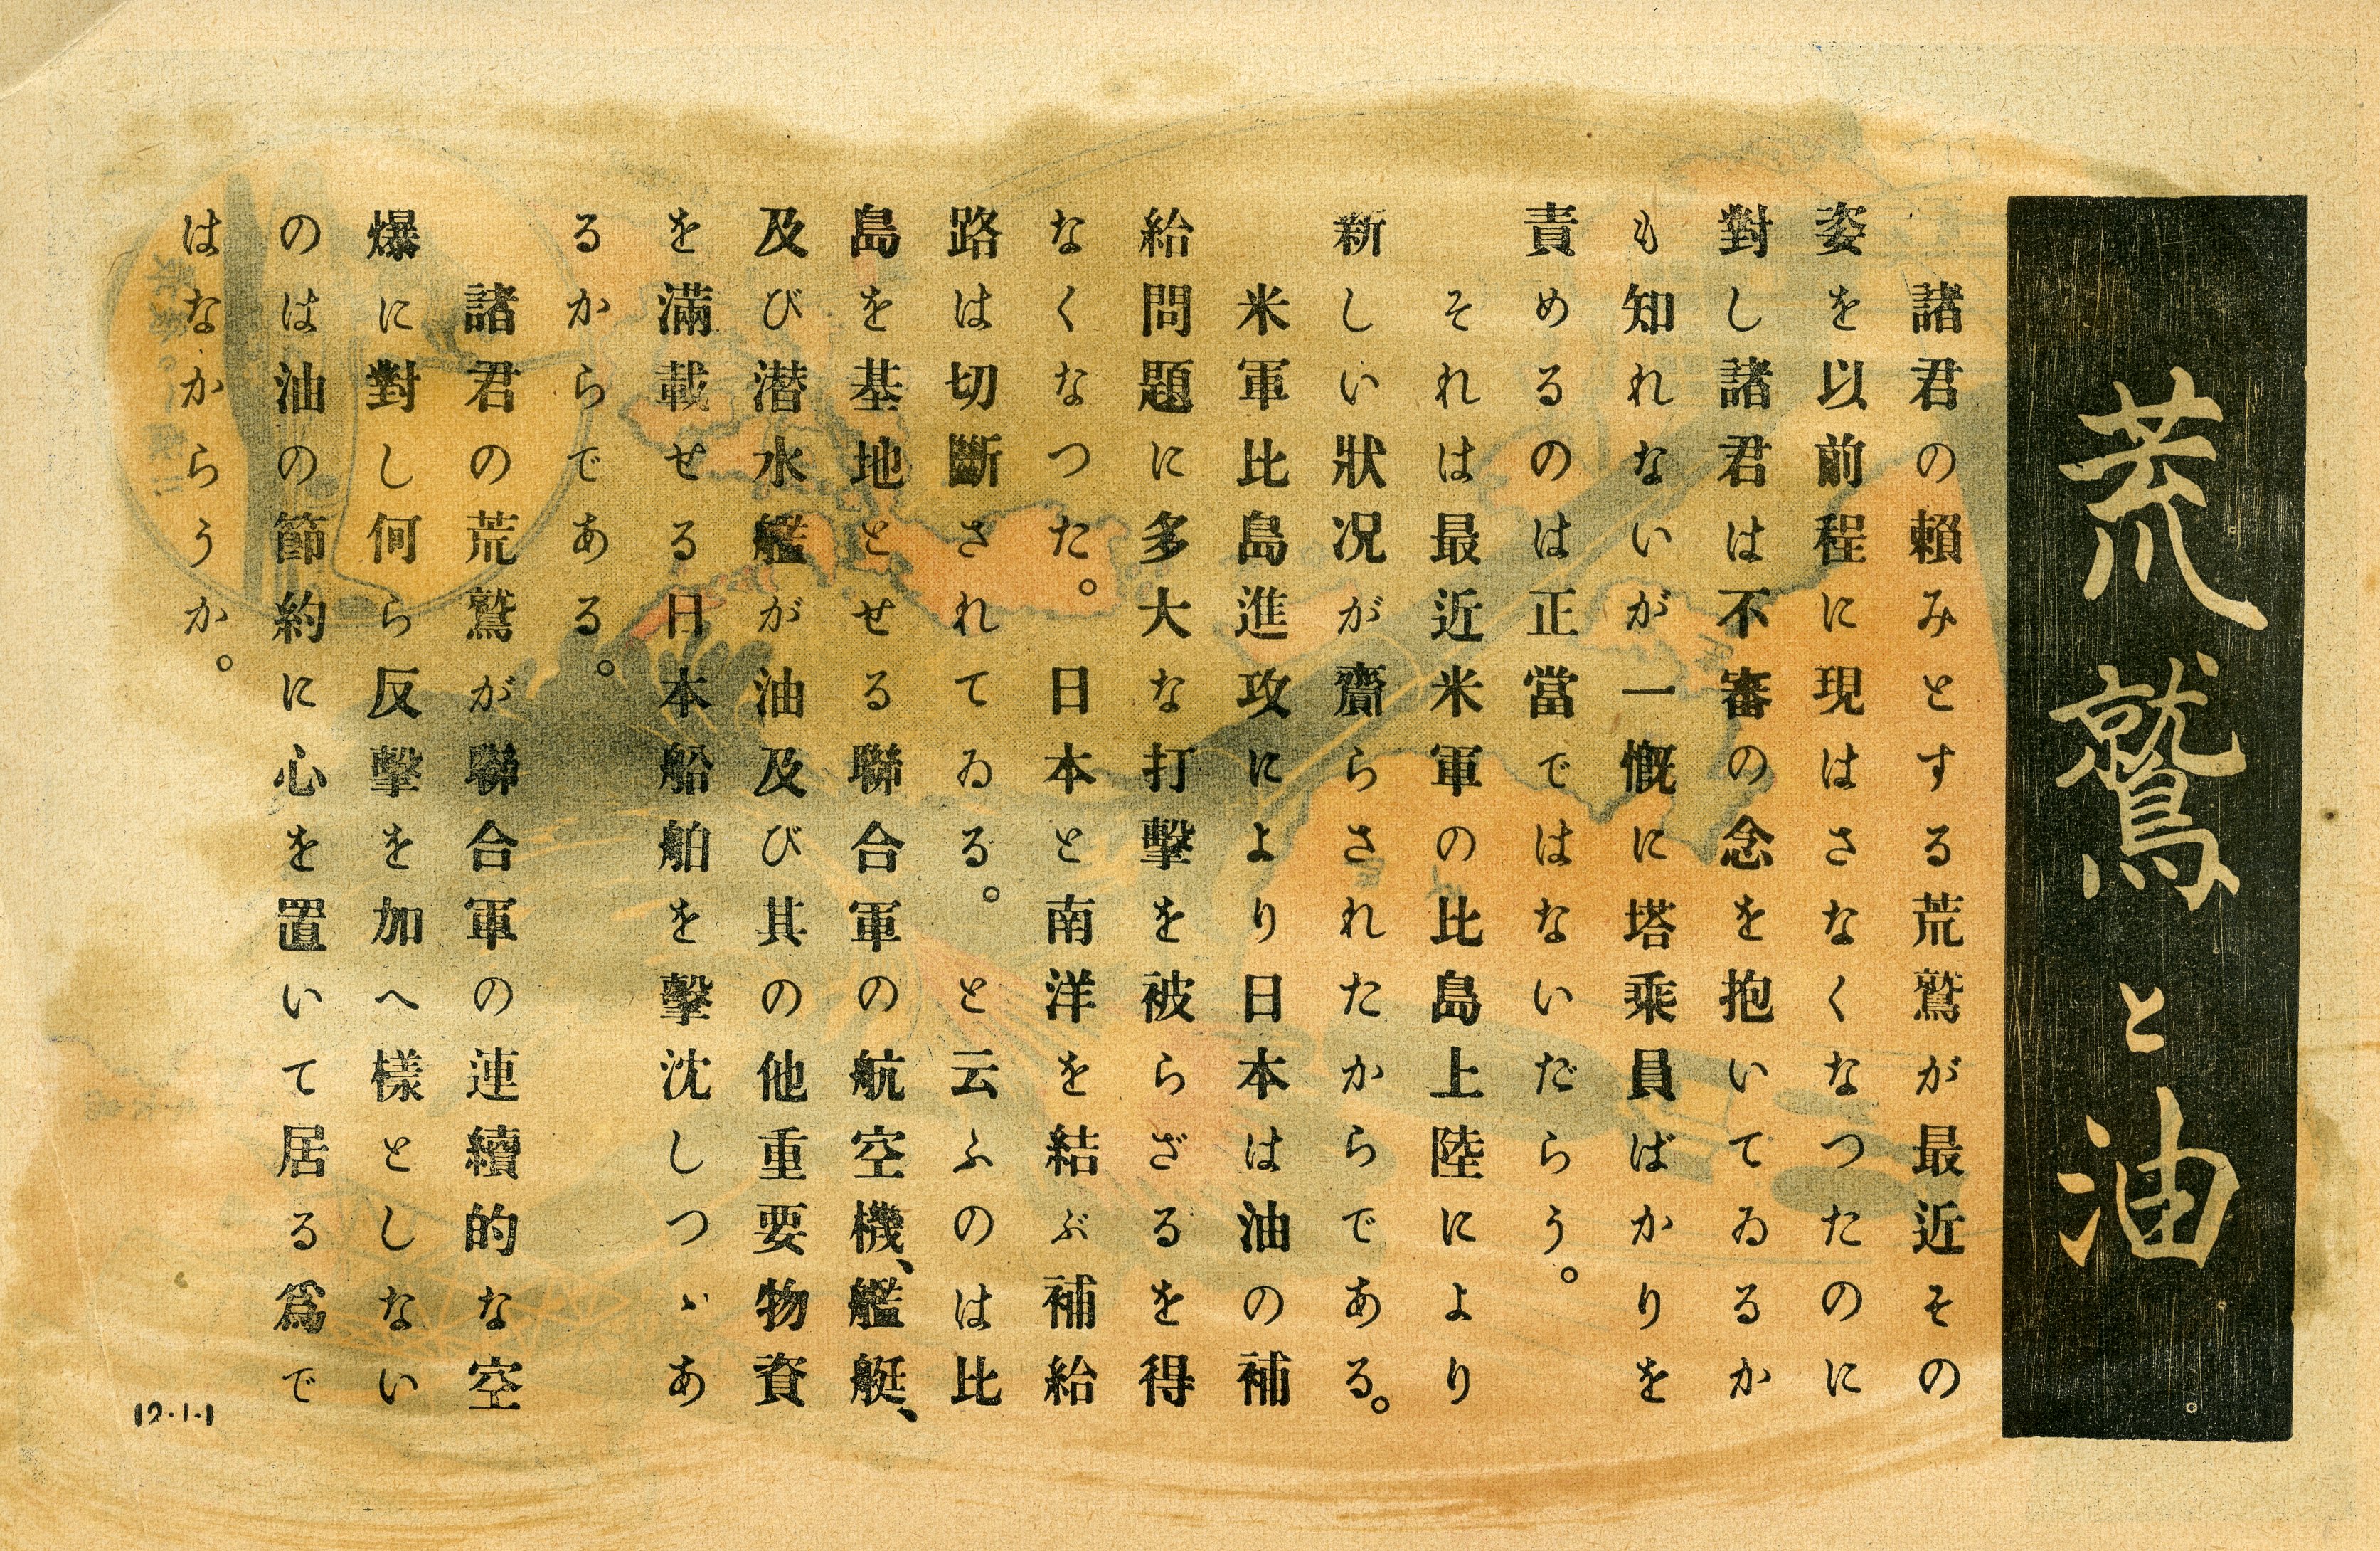 荒鷲と油
諸君の賴みとする荒鷲が最近その
姿を以前程に現はさなくなつたのに
對し諸君は不審の念を抱いてゐるか
も知れないが一慨に塔乘員ばかりを
責めるのは正當ではないだらう。
それは最近米軍の比島上陸により
新しい狀況が齎らされたからである。
米軍比島進攻により日本は油の補
給問題に多大な打擊を被らざるを得
なくなつた。日本と南洋を結ぶ補給
路は切斷されてゐる。と云ふのは比
島を基地とせる聯合軍の航空機、艦艇、
及び潜水艦が油及び其の他重要物資
を滿載せる日本船舶を擊沈しつゝあ
るからである。
諸君の荒鷲が聯合軍の連續的な空
爆に對し何ら反擊を加へ樣としない
のは油の節約に心を置いて居る爲で
はなからうか。
12-1-1